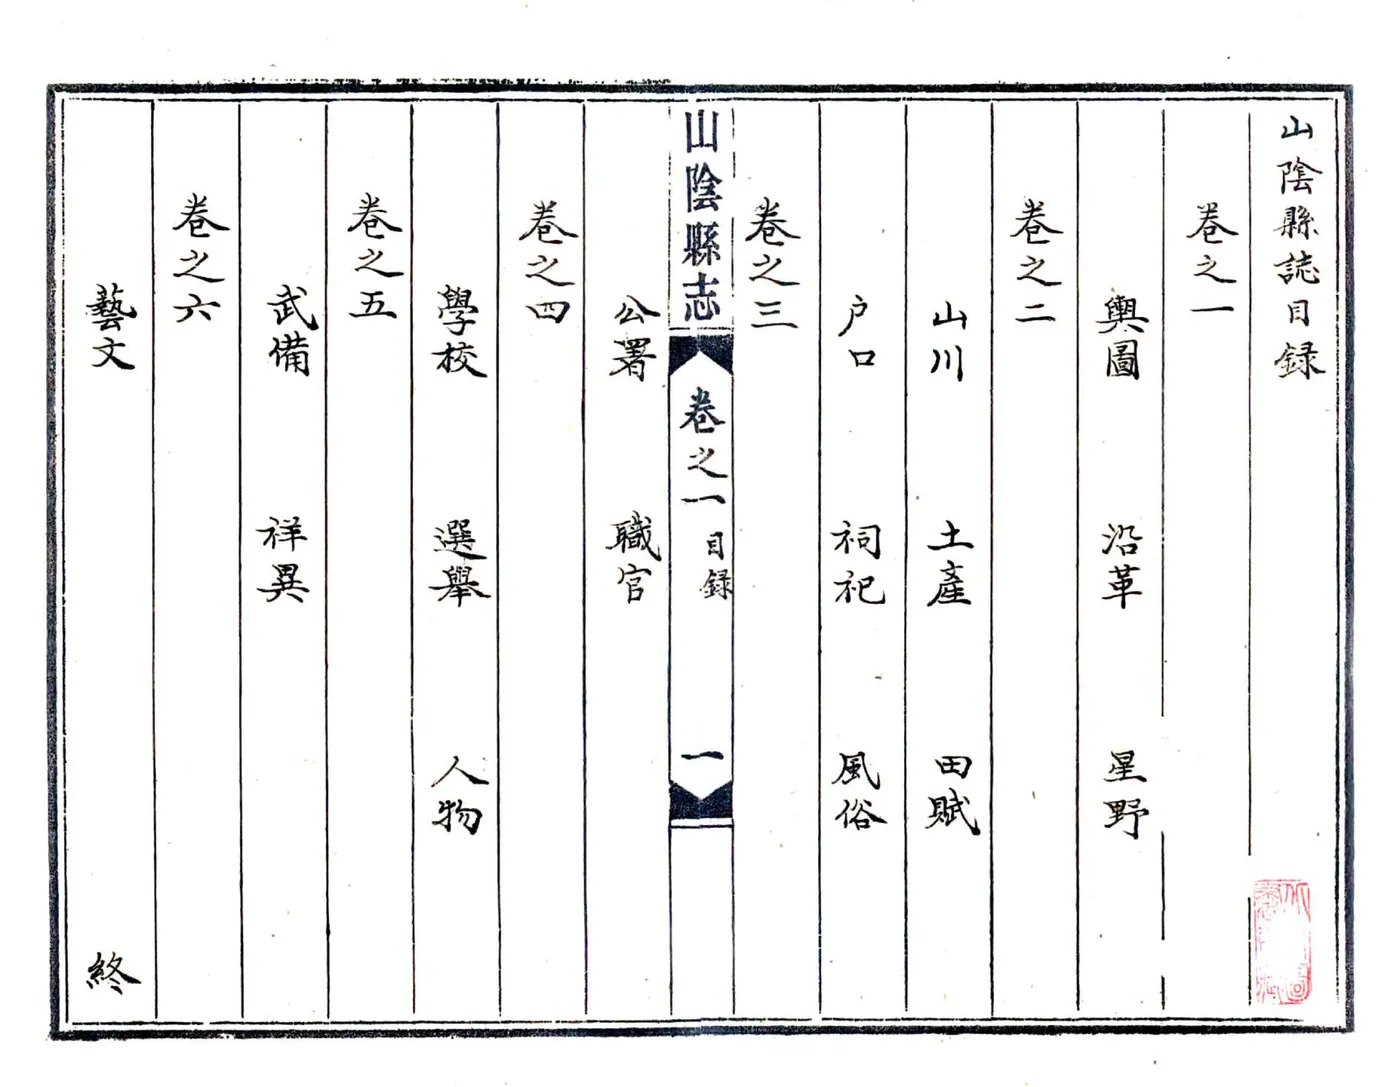 山陰縣誌目録
卷之一
輿圖 沿革 星野
卷之二
山川 土產 田賦
户口 祠祀 風俗
卷之三
山陰縣志 卷之一 目録 一
公署 職官
卷之四
學校 選舉 人物
卷之五
武備 祥異
卷之六
藝文 終